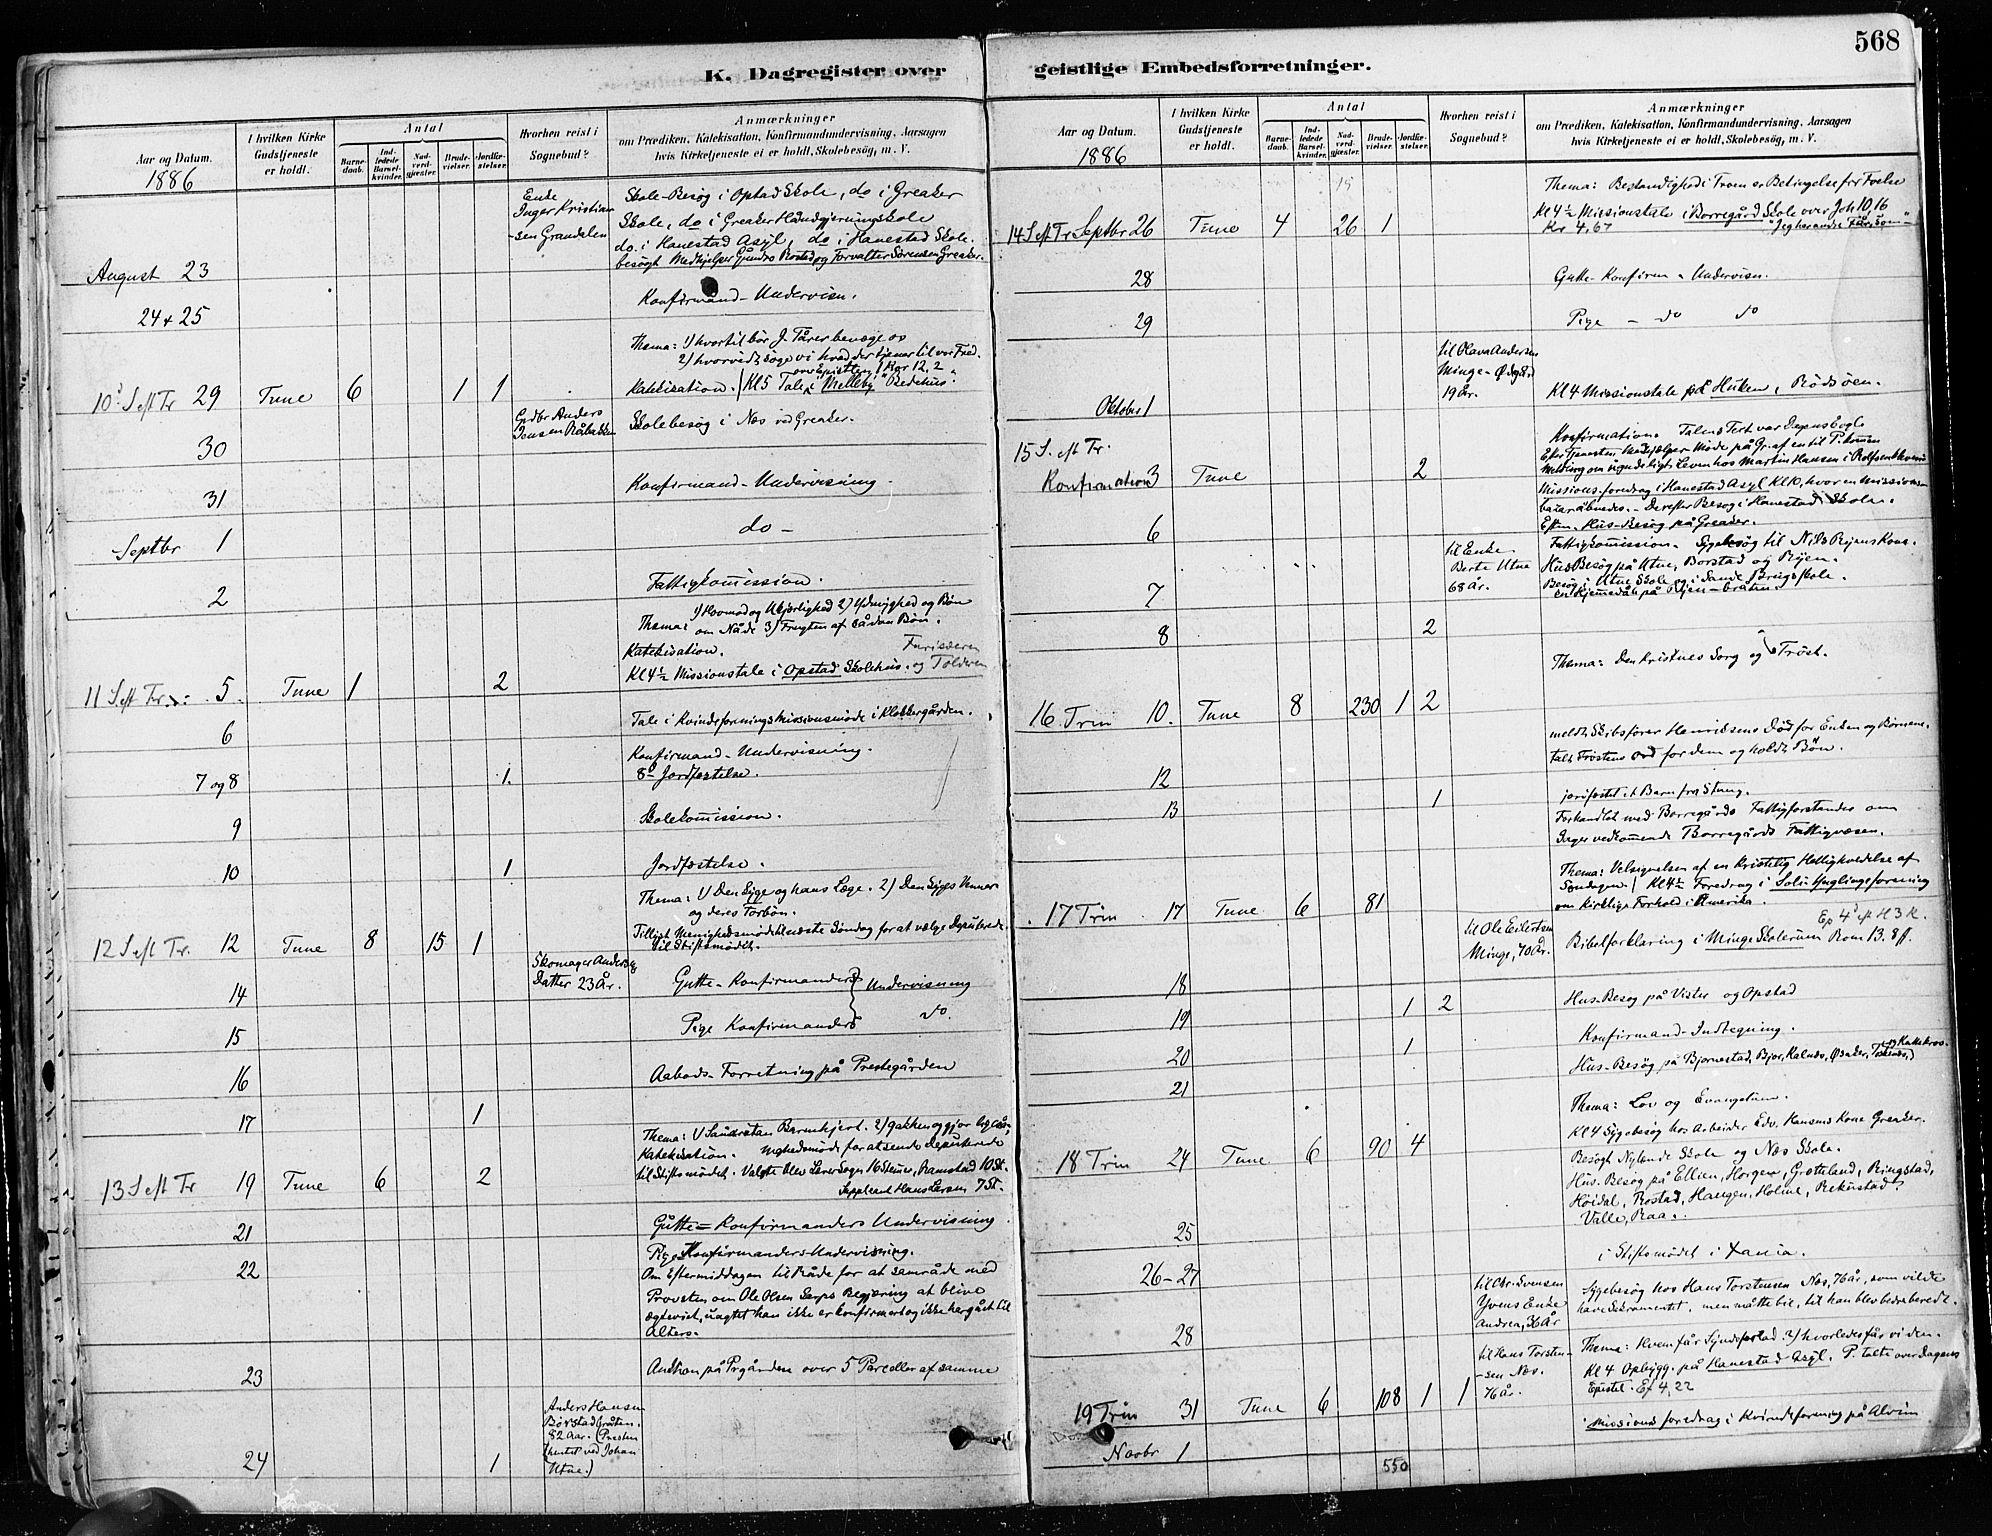 568
K. Dagregister over geistlige Embedsforretninger.
Aar og Datum.
1886
I hvilken Kirke Gudstjeneste er holdt.
Antal
Barne-daab.
Ind-ledede Barsel-kvinder.
Nad-verd-gjæster.
Brude-vielser.
Jordfæ-stelser.
Hvorhen reist i Sognebud?
Anmærkninger
om Prædiken, Katekisation, Konfirmandundervisning, Aarsagen
hvis Kirketjeneste ei er holdt, Skolebesøg, m. V.
Enke
Inger Kristian
-sen Grandalen
Skole-Besøg i Opstad Skole, do i Greaker
Skole, do i Greaker Håndgjerningskole
do. i Hanestad Asyl, do i Hanestad Skole.
besøgt Medhjelper Gunder Rostad og Forvalter Sørensen Greaker.
August 23
24 + 25 Konfirmand-Undervisn.
Thema: 1) hvortil bør J. Tårer bevæge os
2) hvorvidt søge vi hvad der tjener til vor Fred.
over Epistlen 1 Kor 12, 2
Katekisation. / Kl 5 Tale i "Melleby" Bedehus.
10 S eft Tr 29 Tune 6 1 1
Grdbr Anders
Jensen Råbakken
Skolebesøg i Nes ved Greaker.
30
31 Konfirmand-Undervisning.
Septbr 1 do -
2 Fattigkommission.
Thema: 1) Hovmod og Ukjærlighed 2) Ydmyghed og Bøn
om Nåde 3) Frugten af sådan Bøn.
Katekisation. Farisæeren
Kl 4½ Missionstale i Opstad Skolehus. og Tolderen
11 S eft Tr. 5. Tune 1 2
6 Tale i Kvindeforenings Missionsmøde i Klokkergården.
Konfirmand-Undervisning.
7 og 8 1. 8 Jordfæstelse.
9 Skolekommission.
10 1 Jordfæstelse.
Thema: 1) Den Syge og hans Læge. 2) Den Syges Venner
og deres Forbøn.
Tilligt Menighedsmøde næste Søndag for at vælge Deputerede
til Stiftsmødet.
12 S eft Tr. 12 Tune 8 15 1
Skomager Anders
Datter 23 År.
14 Gutte-Konfirmanders Undervisning
15 Pige Konfirmanders do.
16 Aabods-Forretning på Prestegården
17 1
Thema: 1) Samaritan Barmhjert. 2) gak hen og gjør
Katekisation. Mghedsmøde for at sende deputerede
til Stiftsmødet. Valgte blev Lærer Sogn 16 Stemer, Ramstad 10 St.
Suppleant Hans Larsen 7 St.
13 S eft Tr 19 Tune 6 2
21 Gutte=Konfirmanders Undervisning
22 Pige Konfirmanders Undervisning.
Om Eftermiddagen til Råde for at samråde med
Provsten om Ole Olsen Serps Begjæring at blive
ægteviet, uagtet han ikke er konfirmert og ikke har gået til
Alters.
23 Auktion på Prgården over 5 Parceller af samme
Anders Hansen
Børstad bråten.
82 Aar. (Presten
hentet ved Johan
Utne.)
24 1
Aar og Datum.
1886
I hvilken Kirke Gudstjeneste er holdt.
Antal
Barne-daab.
Ind-ledede Barsel-kvinder.
Nad-verd-gjæster.
Brude-vielser.
Jordfæ-stelser.
Hvorhen reist i Sognebud?
Anmærkninger
om Prædiken, Katekisation, Konfirmandundervisning, Aarsagen
hvis Kirketjeneste ei er holdt, Skolebesøg, m. V.
15
Thema: Bestandighed i Troen er Betingelse for Frelse
Kl 4½ Missionstale i Borregård Skole over Joh 10,16
Kr 4,67 "Jeg har andre Får, som"
14 S eft Tr. Septbr 26 Tune 4 26 1
28 Gutte-Konfirm - Undervisn.
29 Pige - do do
til Olava Andersen
Minge-Ødegård
19 År.
Oktober 1 Kl 4 Missionstale på Huken, Rødsøen.
15 S. eft Tr.
Konfirmation 3 Tune 2
Konfirmation. Talens Text var Dagens Evgl.
Efter Tjenesten Medhjælper Møde på Gr. af en til P. kommen
Melding om ugudeligt Levenhos Martin Hansen i Rolfsen
Missions foredrag i Hanestad Asyl Kl 10, hvor en Missions
bazar åbnedes. - Derefter Besøg i Hanestad Skole.
6 Eftm. Hus-Besøg på Greaker.
til Enke
Berte Utne
68 År.
Fattigkommission. Sygebesøg til Nils Ryens Kone.
Hus Besøg på Utne, Borstad og Ryen.
Besøg i Utne Skole og i Sande Brugsskole.
7 en Hjemmedåb på Ryen-bråten.
8 2
Thema: Den Kristnes Sorg og Trøst.
16 Trin 10. Tune 8 230 1 2
meldt Skibsfører Henriksens Død for Enken og Børnene.
talt Trøstens Ord for dem og holdt Bøn.
12
13 1 jordfæstet et Barn fra Stung.
Forhandlet med Borregårds Fattigforstander om
Sager vedkommende Borregårds Fattigvæsen.
Thema: Velsignelsen af en Kristelig Helligholdelse af
Søndagen. / Kl 4½ Foredrag i Soli Ynglingeforening
om kirklige Forhold i Amerika.
17 Trin 17 Tune 6 81
til Ole Eilertsen
Minge, 70 År.
Ep 4 S eft H 3 K.
Bibelforklaring i Minge Skolerum Rom 13. 8 ff.
18
19 1 2 Hus-Besøg på Vister og Opstad
Konfirmand-Indtegning.
20 1
21 Hus-Besøg på Bjørnestad, Bjor, Kalnes,
Thema: Lov og Evangelium.
Kl 4 Sygebesøg hos Arbeider Edv. Hansens Kone Greaker.
18 Trin 24 Tune 6 90 4
Besøgt Nylande Skole og Nes Skole.
Hus-Besøg på Ellien, Horgen, Grotteland, Ringstad,
Høidal, Rostad, Haugen, Holme, Rekustad,
Valle, Raa.
25
26-27 i Stiftsmødet i Xania.
til Chr. Svensen
Yvens Enke
Andrea, 76 År
Sygebesøg hos Hans Torstensen Nes, 76 år, som vilde
have Sakramentet, men måtte bie, til han blev bedre beredt.
28
til Hans Torsten-
-sen Nes.
76 år.
Thema: Hvem får Syndsforlad 2) hvorledes får vi den.
Kl 4 Opbygg. på Hanestad Asyl. P. talte over dagens
Epistel. Ef 4,22
19 Trin 31 Tune 6 108 1 1
Novbr 1 Missions foredrag i Kvindeforening på Alvim
550